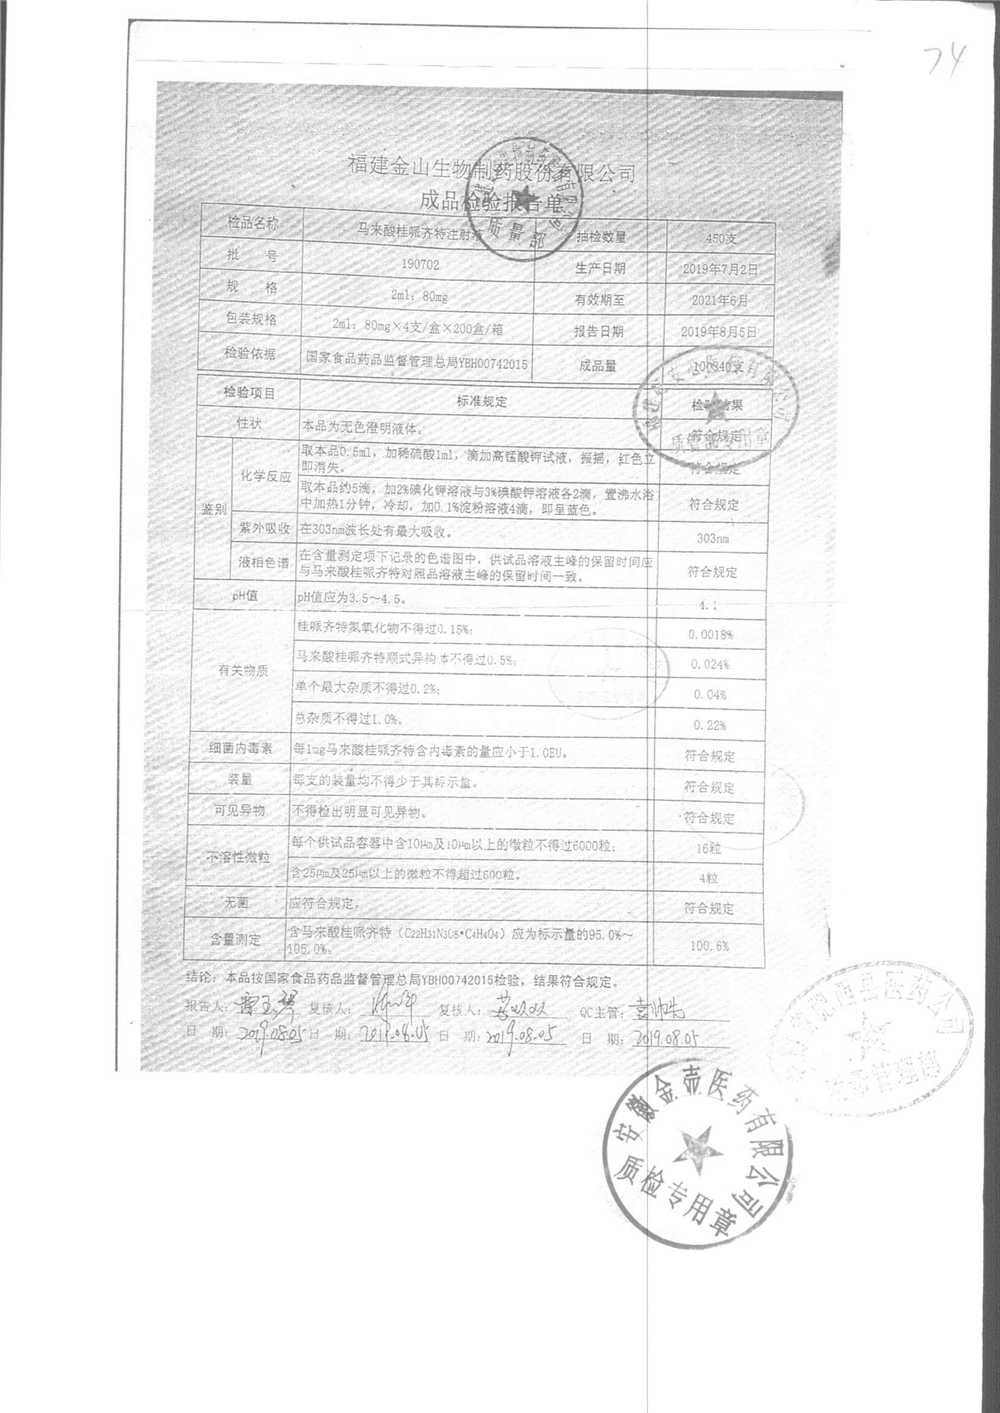 74
福建金山生物制药股份有限公司
成品检验报告单
检品名称 马来酸桂哌齐特注射液 抽检数量 450支
批 号 190702 生产日期 2019年7月2日
规 格 2ml：80mg 有效期至 2021年6月
包装规格 2ml：80mg×4支/盒×200盒/箱 报告日期 2019年8月5日
检验依据 国家食品药品监督管理总局YBH00742015 成品量
检验项目 标准规定 检验结果
性状 本品为无色澄明液体。 符合规定
鉴别 化学反应 取本品0.5ml，加稀硫酸1ml，滴加高锰酸钾试液，振摇，红色立
即消失。 符合规定
取本品约5滴，加2%碘化钾溶液与3%碘酸钾溶液各2滴，置沸水浴
中加热1分钟，冷却，加0.1%淀粉溶液4滴，即呈蓝色。 符合规定
紫外吸收 在303nm波长处有最大吸收。 303nm
液相色谱 在含量测定项下记录的色谱图中，供试品溶液主峰的保留时间应
与马来酸桂哌齐特对照品溶液主峰的保留时间一致。 符合规定
pH值 pH值应为3.5～4.5。 4.1
有关物质 桂哌齐特氮氧化物不得过0.15%； 0.0018%
马来酸桂哌齐特顺式异构体不得过0.5%； 0.024%
单个最大杂质不得过0.2%； 0.04%
总杂质不得过1.0%。 0.22%
细菌内毒素 每1mg马来酸桂哌齐特含内毒素的量应小于1.0EU。 符合规定
装量 每支的装量均不得少于其标示量。 符合规定
可见异物 不得检出明显可见异物。 符合规定
不溶性微粒 每个供试品容器中含10μm及10μm以上的微粒不得过6000粒； 16粒
含25μm及25μm以上的微粒不得超过600粒。 4粒
无菌 应符合规定。 符合规定
含量测定 含马来酸桂哌齐特（C22H31N3O5•C4H4O4）应为标示量的95.0%～
105.0%。 100.6%
结论：本品按国家食品药品监督管理总局YBH00742015检验，结果符合规定。
报告人： 复核人： 复核人： QC主管：
日 期：2019.08.05 日 期：2019.08.05 日 期：2019.08.05 日 期：2019.08.05
质量部
安徽金壶医药有限公司
质检专用章